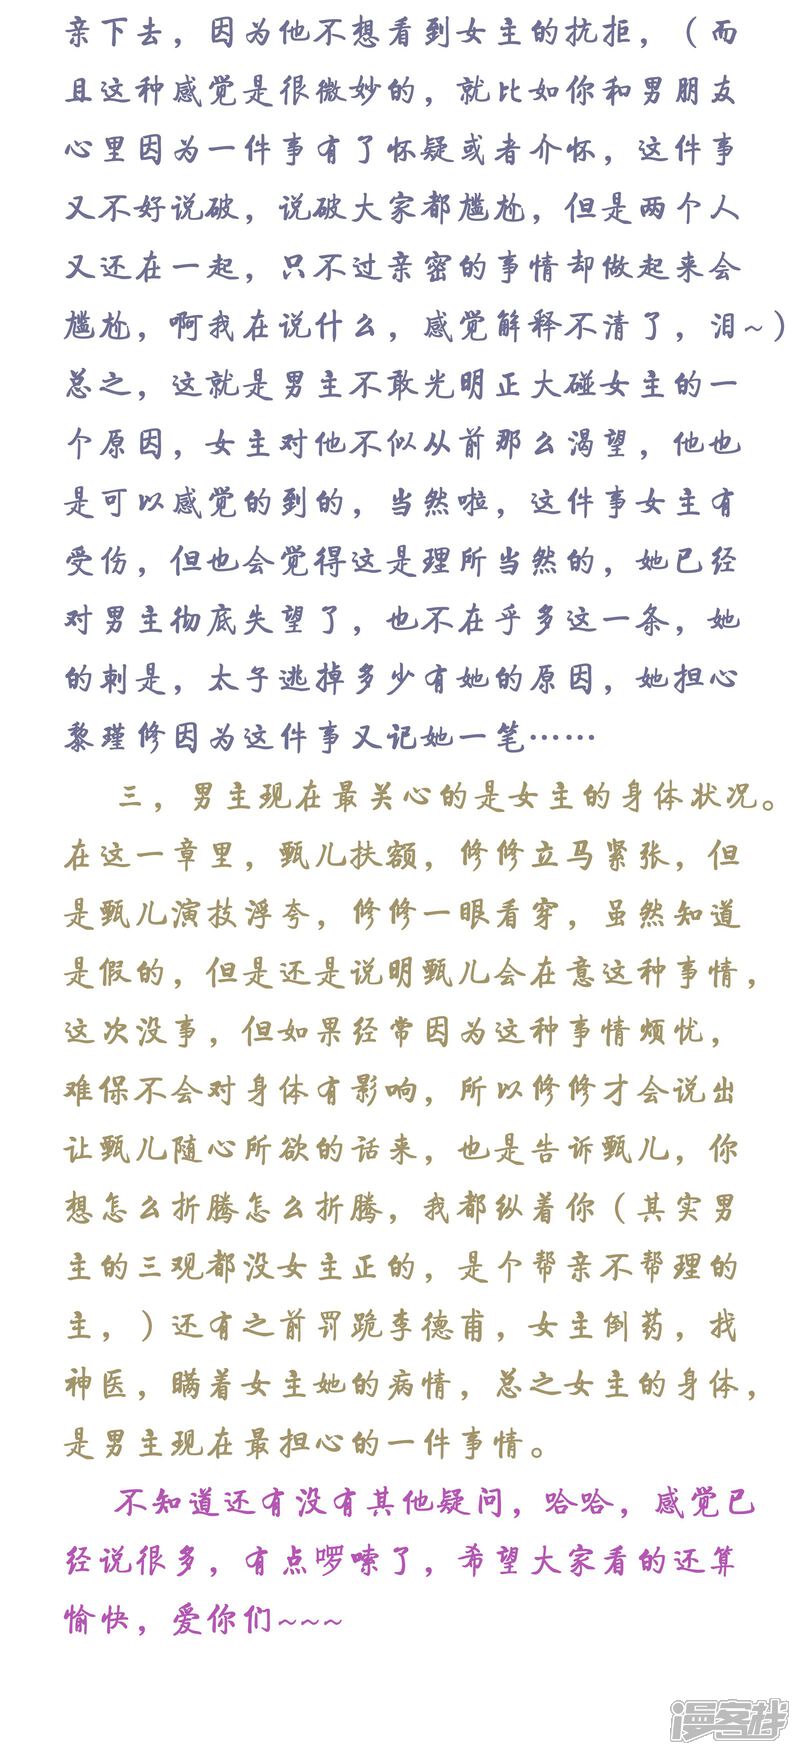 亲下去，因为他不想看到女主的抗拒，（而
且这种感觉是很微妙的，就比如你和男朋友
心里因为一件事有了怀疑或者介怀，这件事
又不好说破，说破大家都尴尬，但是两个人
又还在一起，只不过亲密的事情却做起来会
尴尬，啊我在说什么，感觉解释不清了，泪~）
总之，这就是男主不敢光明正大碰女主的一
个原因，女主对他不似从前那么渴望，他也
是可以感觉的到的，当然啦，这件事女主有
受伤，但也会觉得这是理所当然的，她已经
对男主彻底失望了，也不在乎多这一条，她
的刺是，太子逃掉多少有她的原因，她担心
黎瑾修因为这件事又记她一笔……
三，男主现在最关心的是女主的身体状况。
在这一章里，甄儿扶额，修修立马紧张，但
是甄儿演技浮夸，修修一眼看穿，虽然知道
是假的，但是还是说明甄儿会在意这种事情，
这次没事，但如果经常因为这种事情烦忧，
难保不会对身体有影响，所以修修才会说出
让甄儿随心所欲的话来，也是告诉甄儿，你
想怎么折腾怎么折腾，我都纵着你（其实男
主的三观都没女主正的，是个帮亲不帮理的
主，）还有之前罚跪李德甫，女主倒药，找
神医，瞒着女主她的病情，总之女主的身体，
是男主现在最担心的一件事情。
不知道还有没有其他疑问，哈哈，感觉已
经说很多，有点啰嗦了，希望大家看的还算
愉快，爱你们~~~
漫客栈